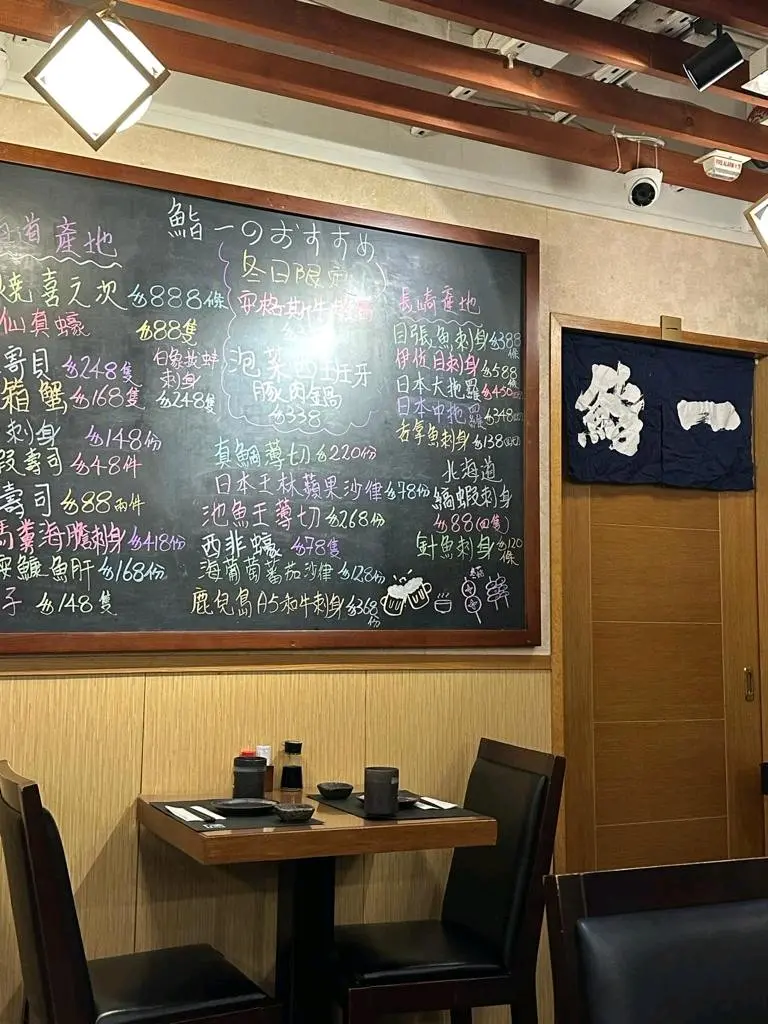 鮨一のおすすめ
道產地
燒喜之次 $888條
仙真蠔 $88隻
哥貝 $248隻
箱蟹 $168隻
刺身 $148份
蝦壽司 $48件
壽司 $88兩件
馬糞海膽刺身 $418份
鮟鱇魚肝 $168份
子 $148隻
白象拔蚌
刺身
$248隻
冬日限定
安格斯牛
泡菜西班牙
豚肉鍋
$338
真鯛薄切 $220份
日本王林蘋果沙律 $78份
池魚王薄切 $268份
西非蠔 $78隻
海葡萄蕃茄沙律 $128份
鹿兒島A5和牛刺身 $368份
長崎產地
目張魚刺身 $388條
伊佐目刺身 $588條
日本大拖羅 $450
日本中拖羅 $348
刺身 $138
北海道
縞蝦刺身
$88(四隻)
針魚刺身 $120條
鮨一